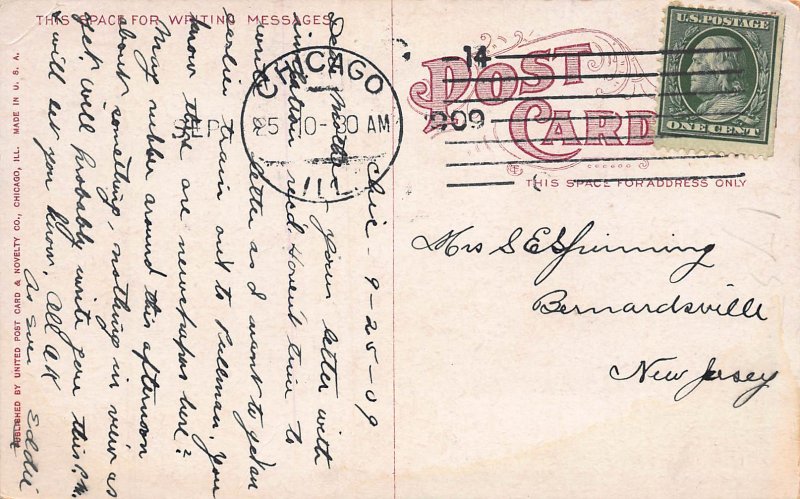 THIS SPACE FOR WRITING MESSAGES
POST CARD
THIS SPACE FOR ADDRESS ONLY
U.S. POSTAGE
ONE CENT
CHICAGO
SEP 25 10-30 AM
ILL
14
909
Chic - 9-25-09
Dear Mother - your letter with
invitation recd. Haven't time to
write a letter as I want to get an
earlier train out to Pullman. You
know there are newspapers here?
May rubber around this afternoon
about something, nothing in view as
yet. Will probably write you this P.M.
& will let you know. All OK
As ever Eddie
Mrs S E Spinning
Bernardsville
New Jersey
PUBLISHED BY UNITED POST CARD & NOVELTY CO., CHICAGO, ILL. MADE IN U. S. A.